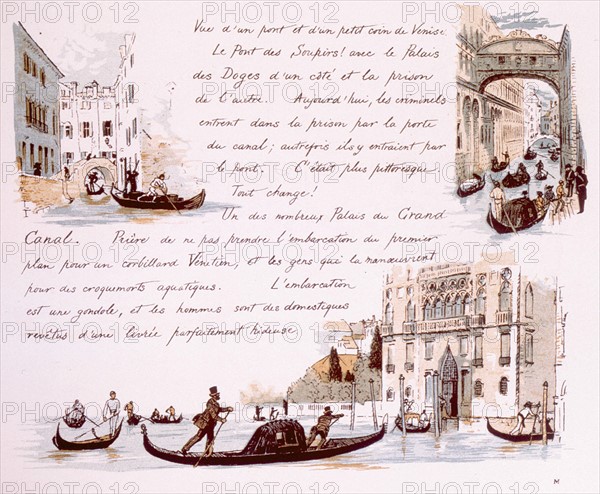 Vue d'un pont et d'un petit coin de Venise.
Le Pont des Soupirs! avec le Palais
des Doges d'un côté et la prison
de l'autre. Aujourd'hui, les criminels
entrent dans la prison par la porte
du canal; autrefois ils y entraient par
le pont. C'était plus pittoresque
Tout change!
Un des nombreux Palais du Grand
Canal. Prière de ne pas prendre l'embarcation du premier
plan pour un corbillard Vénitien, et les gens qui la manœuvrent
pour des croquemorts aquatiques. L'embarcation
est une gondole, et les hommes sont des domestiques
revêtus d'une livrée parfaitement hideuse
M
PHOTO12